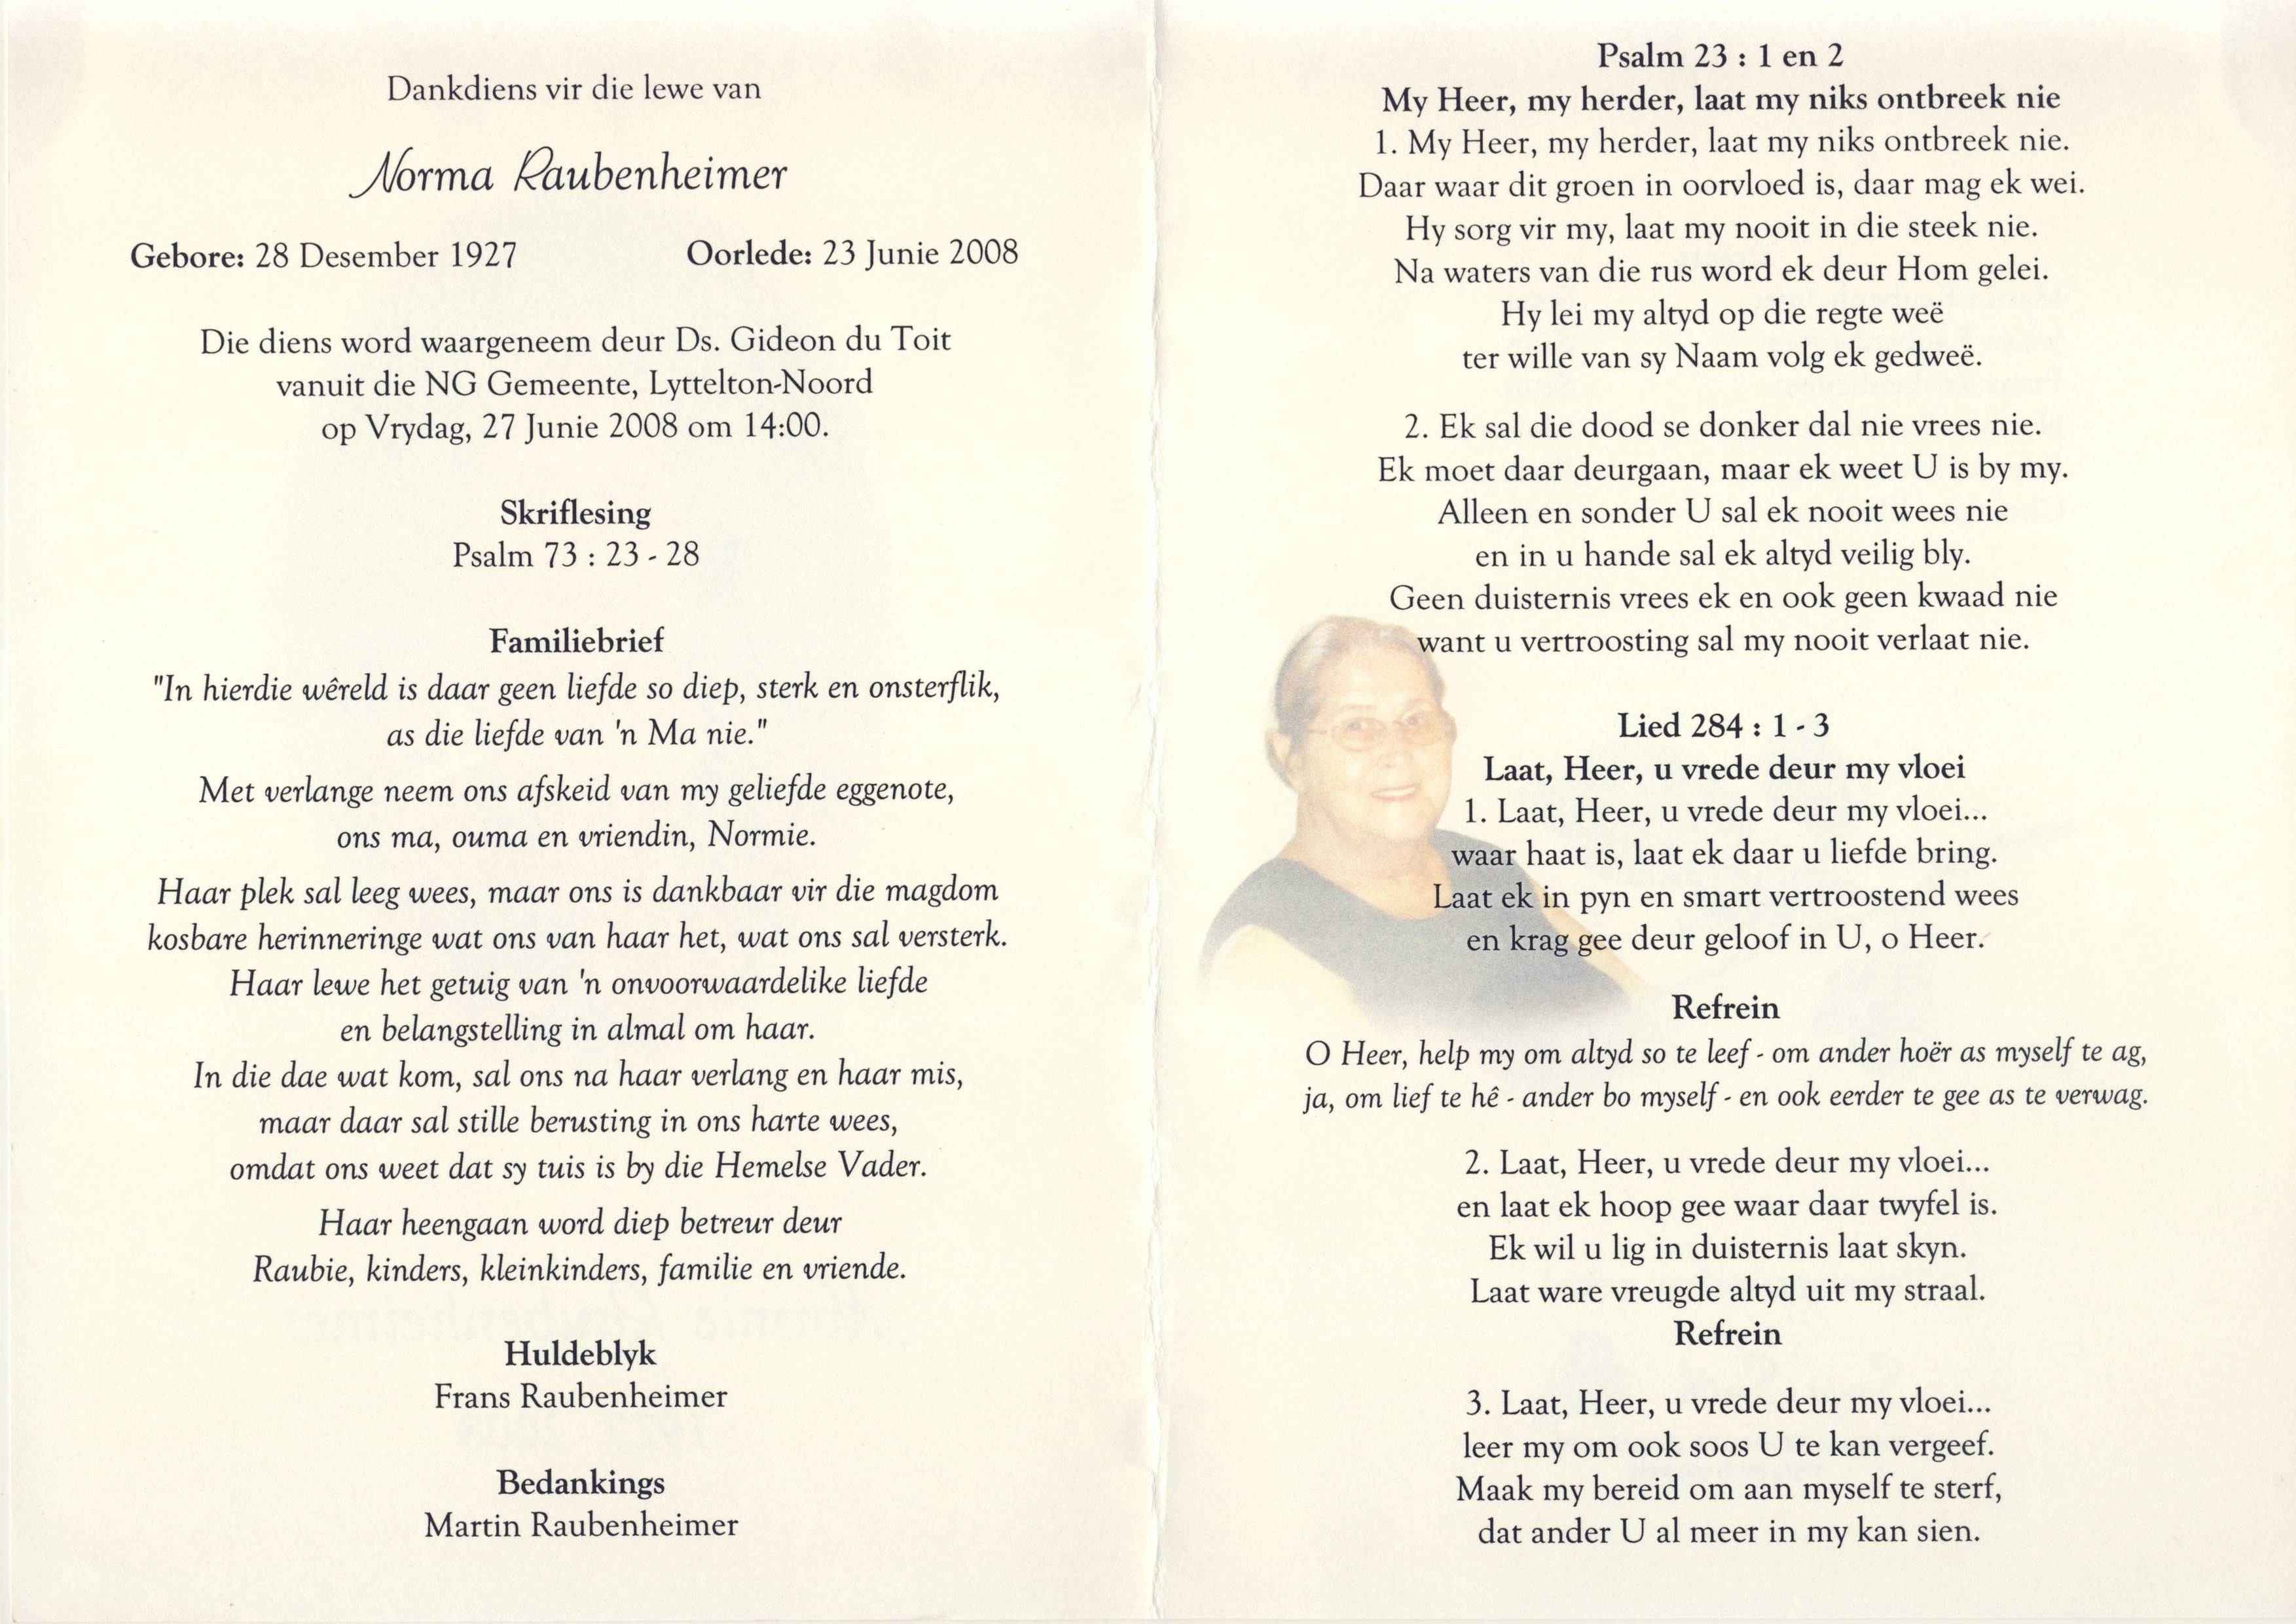 Dankdiens vir die lewe van
Norma Raubenheimer
Gebore: 28 Desember 1927 Oorlede: 23 Junie 2008
Die diens word waargeneem deur Ds. Gideon du Toit
vanuit die NG Gemeente, Lyttelton-Noord
op Vrydag, 27 Junie 2008 om 14:00.
Skriflesing
Psalm 73 : 23 - 28
Familiebrief
"In hierdie wêreld is daar geen liefde so diep, sterk en onsterflik,
as die liefde van 'n Ma nie."
Met verlange neem ons afskeid van my geliefde eggenote,
ons ma, ouma en vriendin, Normie.
Haar plek sal leeg wees, maar ons is dankbaar vir die magdom
kosbare herinneringe wat ons van haar het, wat ons sal versterk.
Haar lewe het getuig van 'n onvoorwaardelike liefde
en belangstelling in almal om haar.
In die dae wat kom, sal ons na haar verlang en haar mis,
maar daar sal stille berusting in ons harte wees,
omdat ons weet dat sy tuis is by die Hemelse Vader.
Haar heengaan word diep betreur deur
Raubie, kinders, kleinkinders, familie en vriende.
Huldeblyk
Frans Raubenheimer
Bedankings
Martin Raubenheimer
Psalm 23 : 1 en 2
My Heer, my herder, laat my niks ontbreek nie
1. My Heer, my herder, laat my niks ontbreek nie.
Daar waar dit groen in oorvloed is, daar mag ek wei.
Hy sorg vir my, laat my nooit in die steek nie.
Na waters van die rus word ek deur Hom gelei.
Hy lei my altyd op die regte weë
ter wille van sy Naam volg ek gedweë.
2. Ek sal die dood se donker dal nie vrees nie.
Ek moet daar deurgaan, maar ek weet U is by my.
Alleen en sonder U sal ek nooit wees nie
en in u hande sal ek altyd veilig bly.
Geen duisternis vrees ek en ook geen kwaad nie
want u vertroosting sal my nooit verlaat nie.
Lied 284 : 1 - 3
Laat, Heer, u vrede deur my vloei
1. Laat, Heer, u vrede deur my vloei...
waar haat is, laat ek daar u liefde bring.
Laat ek in pyn en smart vertroostend wees
en krag gee deur geloof in U, o Heer.
Refrein
O Heer, help my om altyd so te leef - om ander hoër as myself te ag,
ja, om lief te hê - ander bo myself - en ook eerder te gee as te verwag.
2. Laat, Heer, u vrede deur my vloei...
en laat ek hoop gee waar daar twyfel is.
Ek wil u lig in duisternis laat skyn.
Laat ware vreugde altyd uit my straal.
Refrein
3. Laat, Heer, u vrede deur my vloei...
leer my om ook soos U te kan vergeef.
Maak my bereid om aan myself te sterf,
dat ander U al meer in my kan sien.